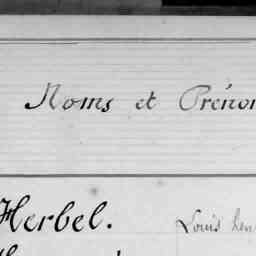 Noms et Prénom
Herbel. Louis Hen